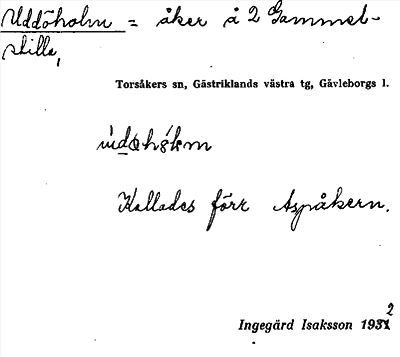 Uddöholm = åker å 2 Gammel-
stilla,
Torsåkers sn, Gästriklands västra tg, Gävleborgs l.
Kallades förr Aspåkern.
Ingegärd Isaksson 1932